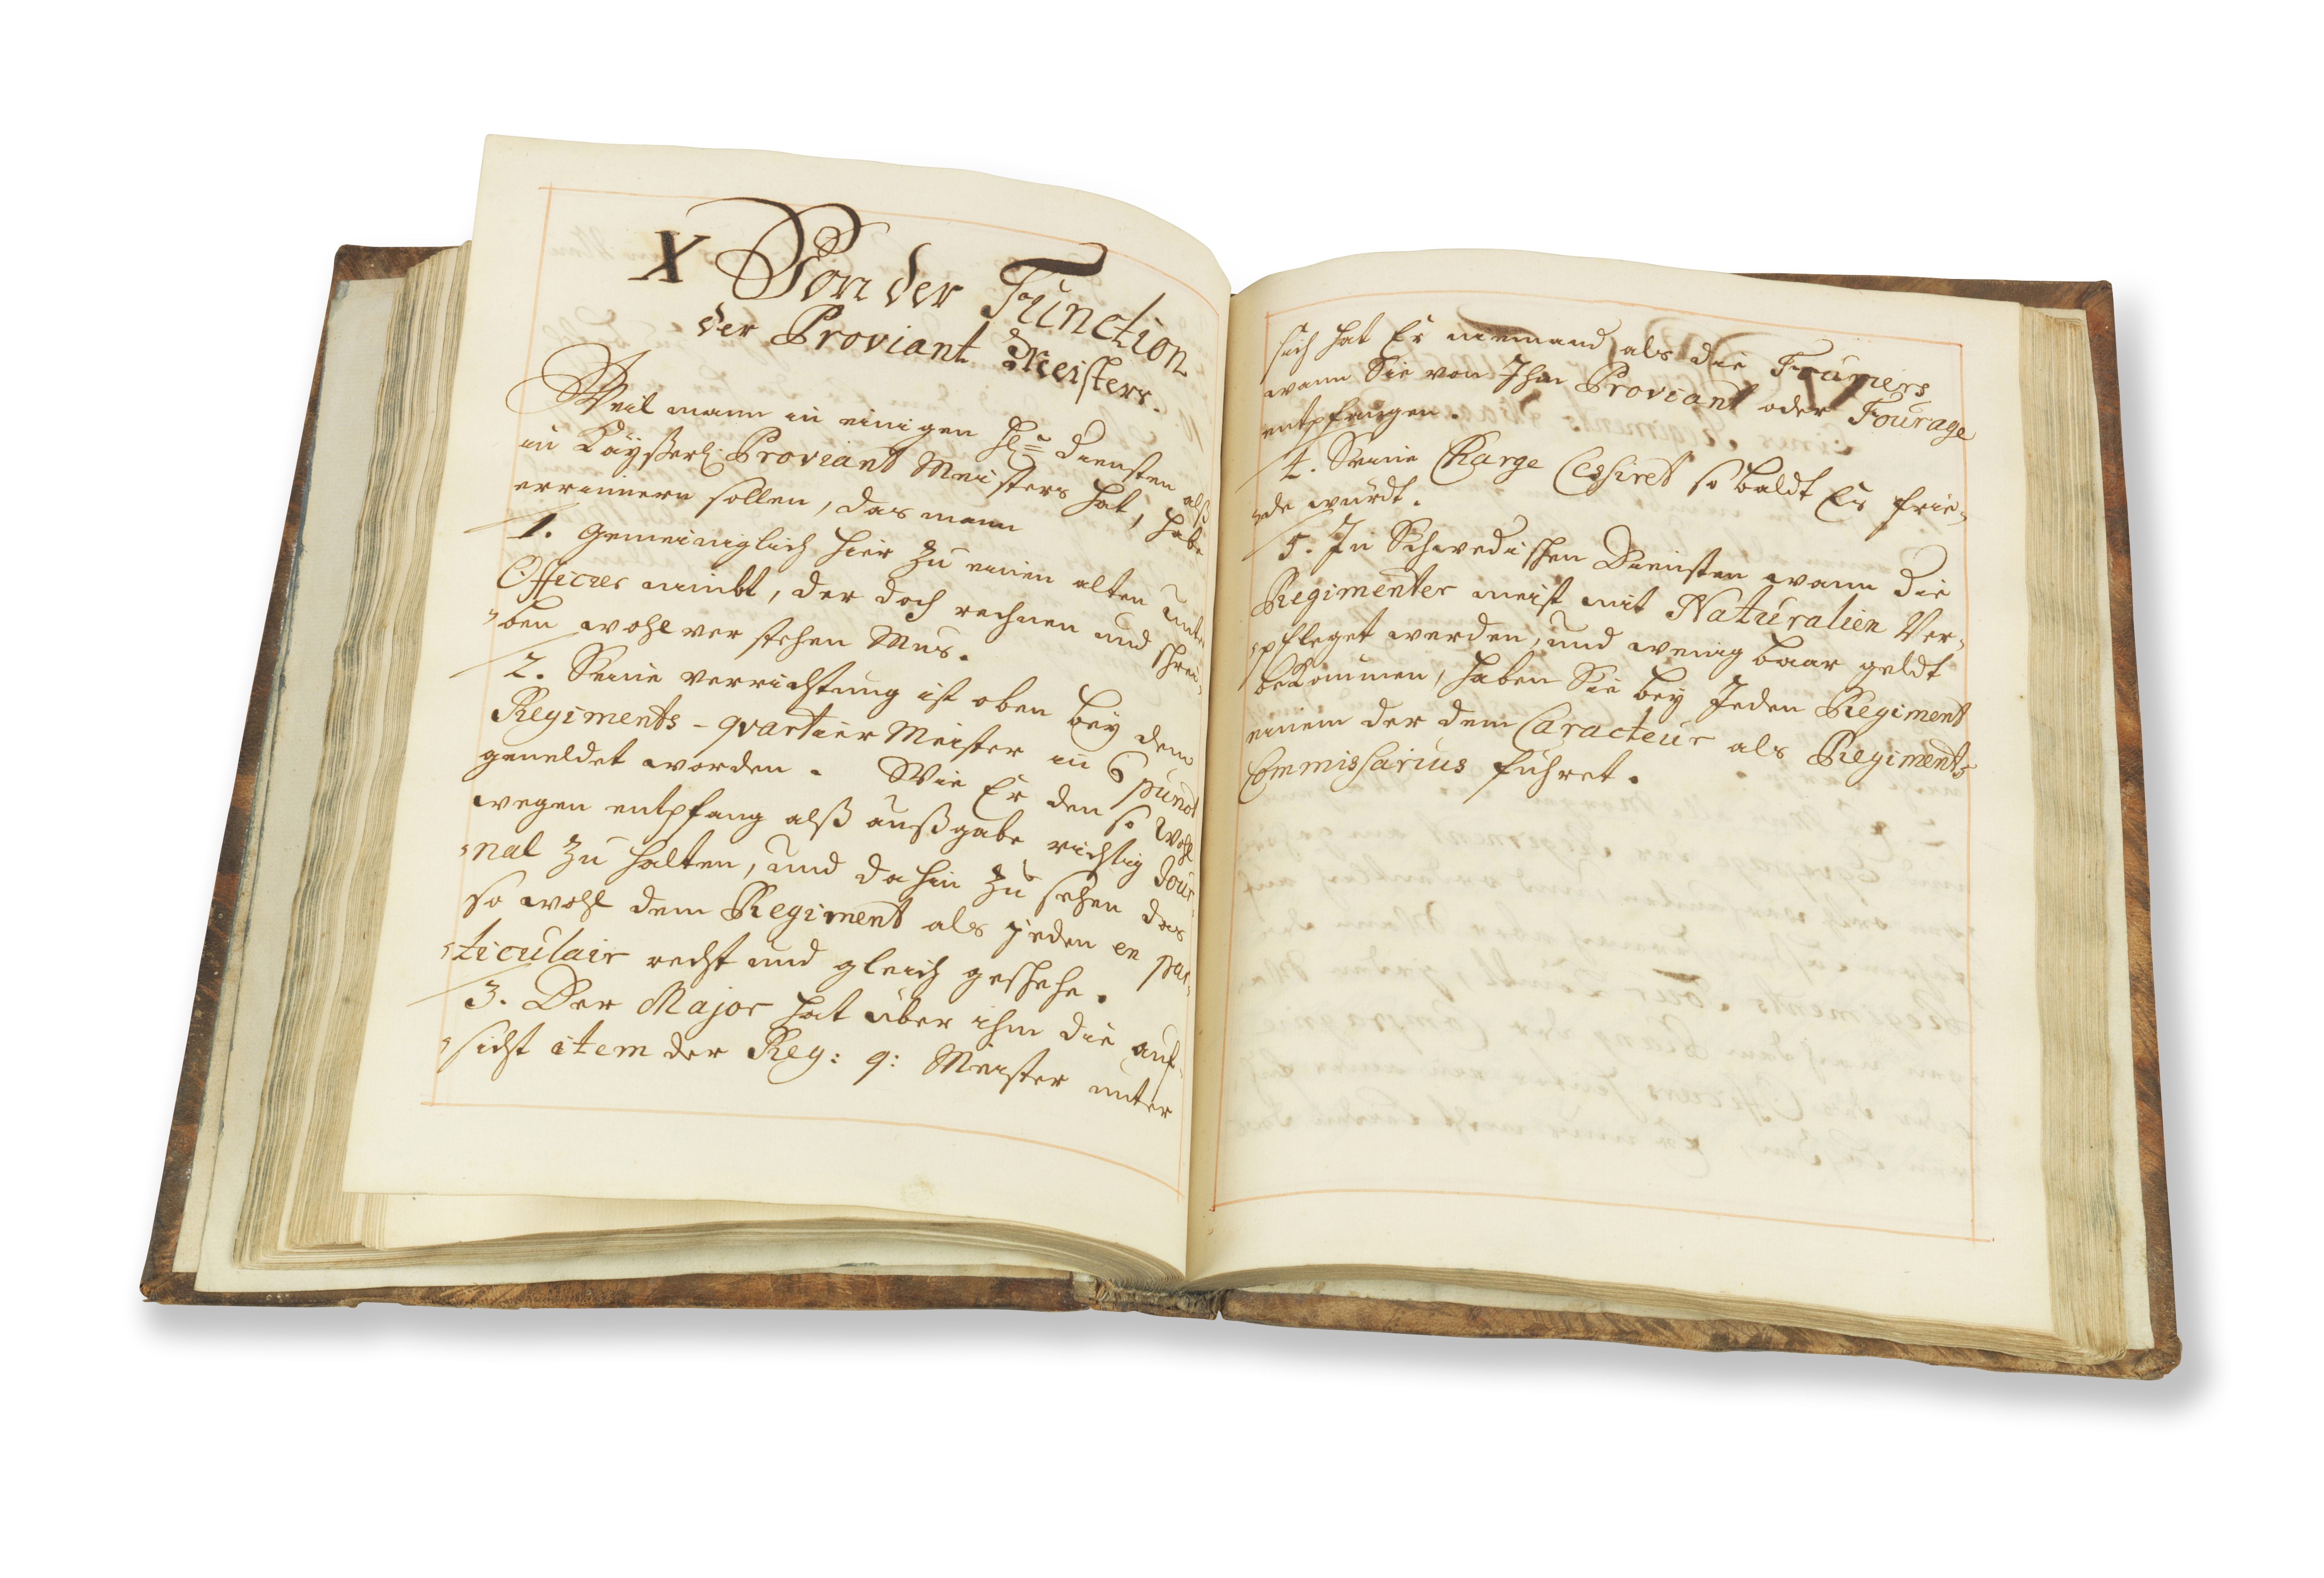 X Von der Function
der Proviant Meisters.
Weil mann in einigen Diensten alß
in Käyßerl: Proviant Meisters hat, habe
errinnern sollen, das mann
1. gemeiniglich hier zu einen alten Unter
Officier nimbt, der doch rechnen und schrei=
=ben wohl verstehen Mus.
2. Seine verrichtung ist oben beÿ dem
Regiments-quartier Meister in 6 punct
gemeldet worden. Wie Er den so wohl
wegen entpfang alß außgabe richtig Jour=
=nal zu halten, und dahin zu sehen das
so wohl dem Regiment als jeden en par=
=ticulair recht und gleich geschehe.
3. Der Major hat über ihm die auf=
=sicht item der Reg: q: Meister unter
sich hat Er niemand, als die Fouriers
wann Sie von Ihm Proviant oder Fourage
entpfangen.
4. Seine Charge Cessiret so baldt Es frie=
=de würdt.
5. In Schwedischen Diensten wann die
Regimenter meist mit Naturalien Ver=
=pfleget werden, und wenig baar geldt
bekommen, haben Sie beÿ Jeden Regiment
einem der dem Caracteur als Regiments
Commissarius führet.